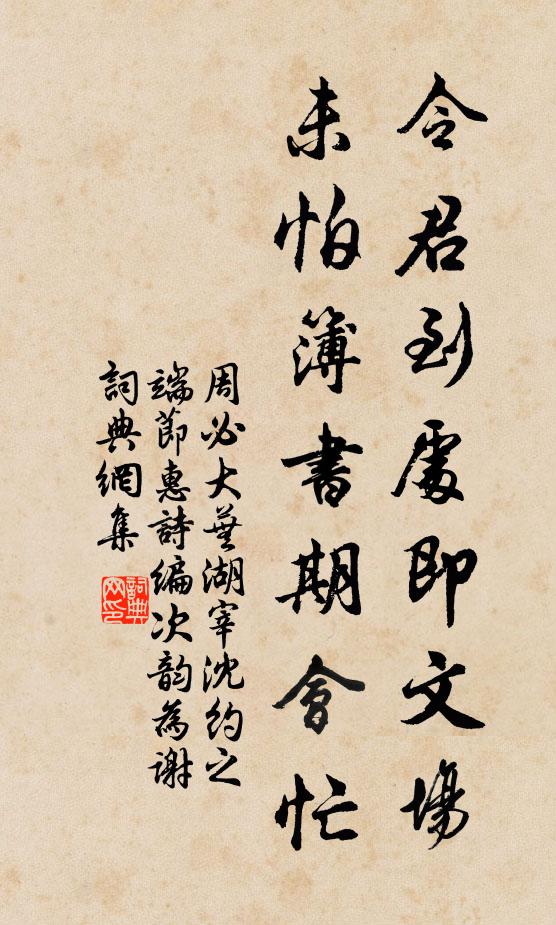 令君到處即文場
未怕簿書期會忙
周必大蕪湖宰沈約之
端節惠詩編次韵為謝
詞典網集
詞典網印